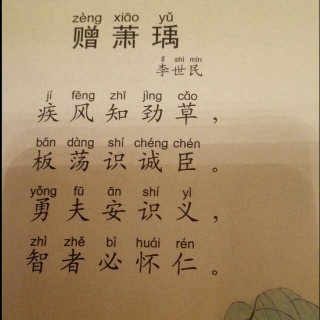 zèng xiāo yǔ
赠萧瑀
lǐ shì mín
李世民
jí fēng zhī jìng cǎo
疾风知劲草，
bǎn dàng shí chéng chén
板荡识诚臣。
yǒng fū ān shí yì
勇夫安识义，
zhì zhě bì huái rén
智者必怀仁。